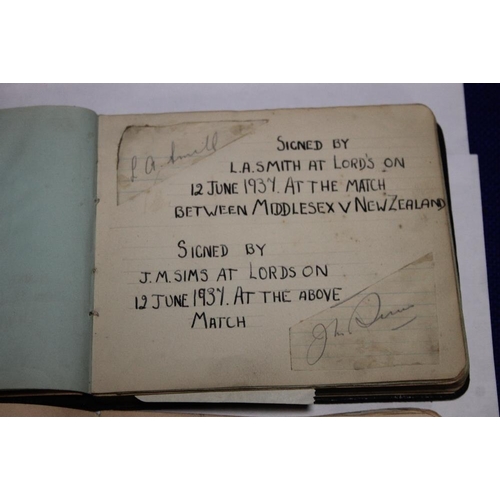 SIGNED BY
L.A. SMITH AT LORD'S ON
12 JUNE 1937. AT THE MATCH
BETWEEN MIDDLESEX V NEW ZEALAND
SIGNED BY
J.M. SIMS AT LORDS ON
12 JUNE 1937. AT THE ABOVE
MATCH